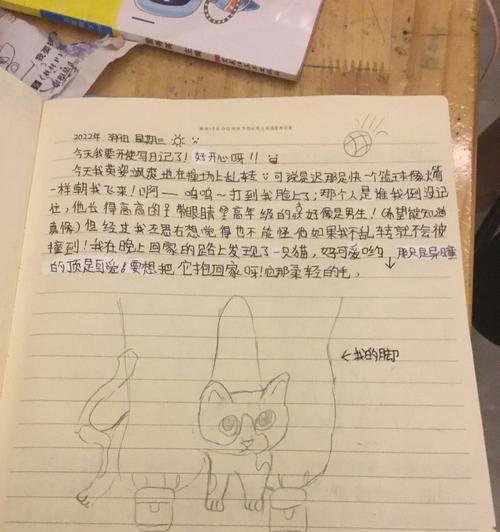 2022年 星期三
今天我要开使写日记了!好开心呀!!
今天我英姿飒爽地在操场上乱转 可说是迟那是快一个篮球像火箭
一样朝我飞来!啊——呜呜~打到我脸上了;那个人是谁我倒没记
住,他长得高高的 带眼睛 高年级的 好像是男生!(希望能知道
真候)但经过我左思右想觉得也不能怪他如果我不乱转就不会被
撞到!我在晚上回家的路上发现了一只猫,好可爱哟 那只是异瞳
的顶是可爱!要想把它抱回家呀!它那柔轻的毛,
←我的脚